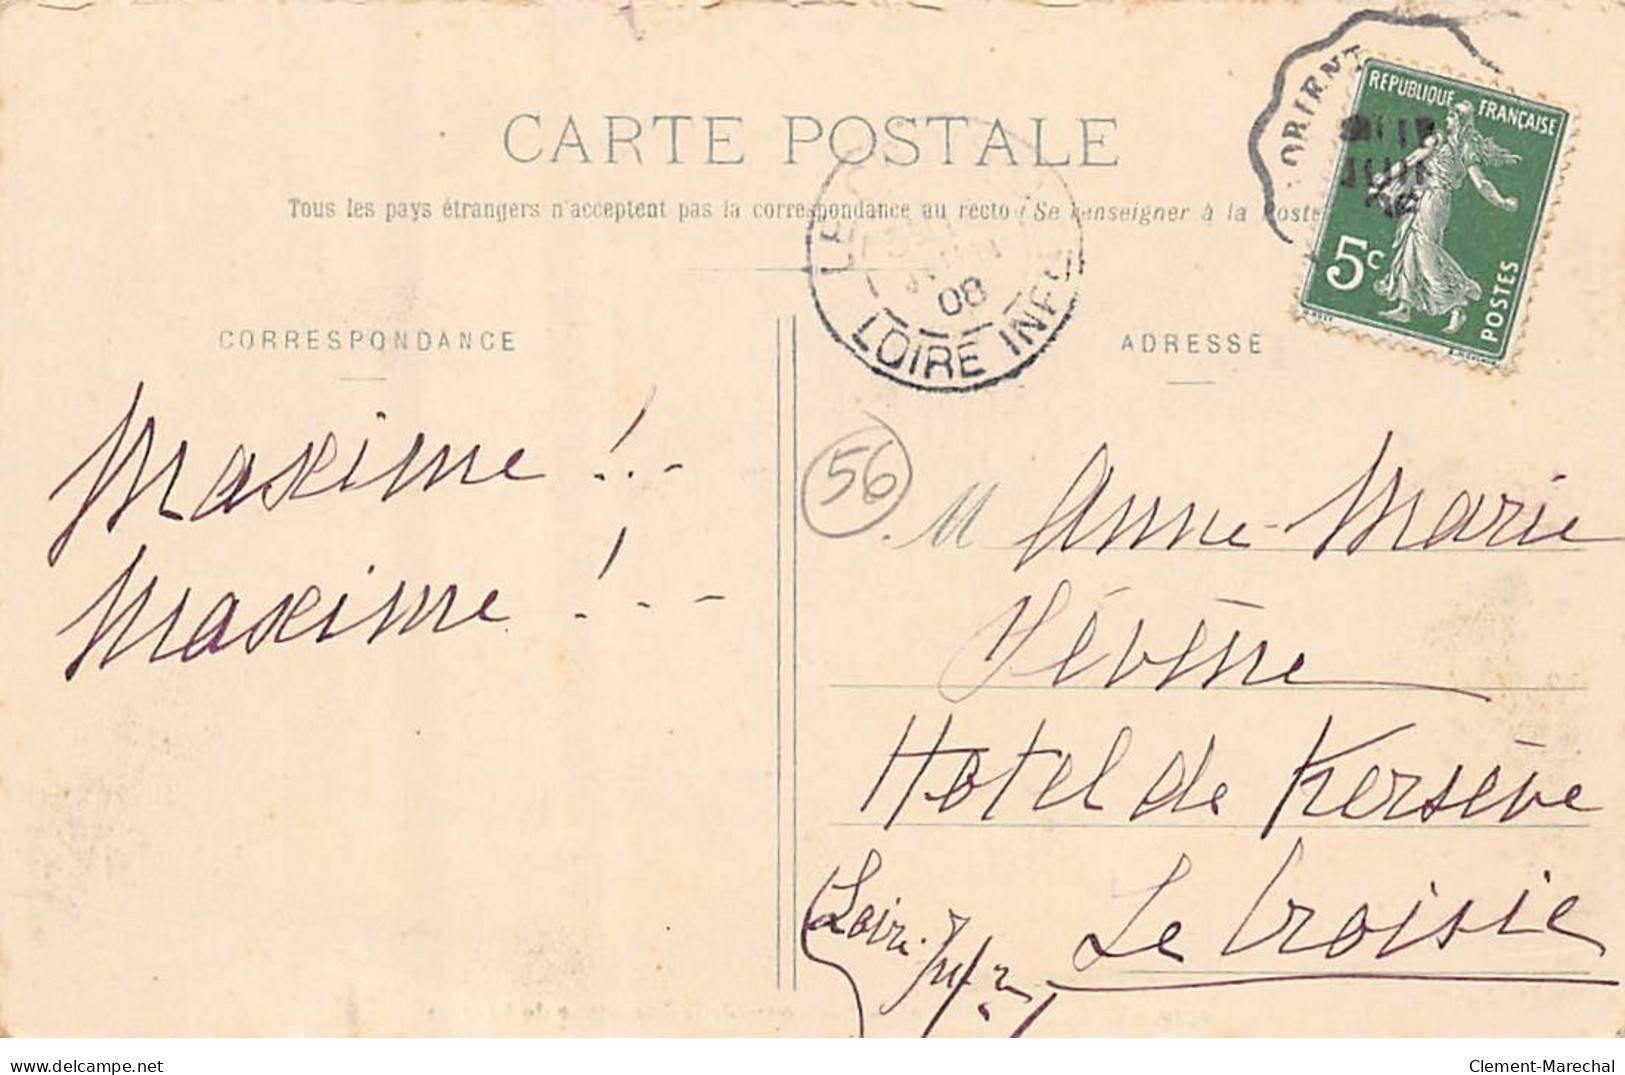 CARTE POSTALE
Tous les pays étrangers n'acceptent pas la correspondance au recto (Se renseigner à la Poste
ORIENT
REPUBLIQUE FRANÇAISE
5c
POSTES
LE
08
LOIRE INFRE
CORRESPONDANCE
ADRESSE
Maxime !..-
Maxime !..-
56
M Anne-Marie
Hotel de Kersève
Le Croisic
Loire Inf
delcampe.net
Clement-Marechal